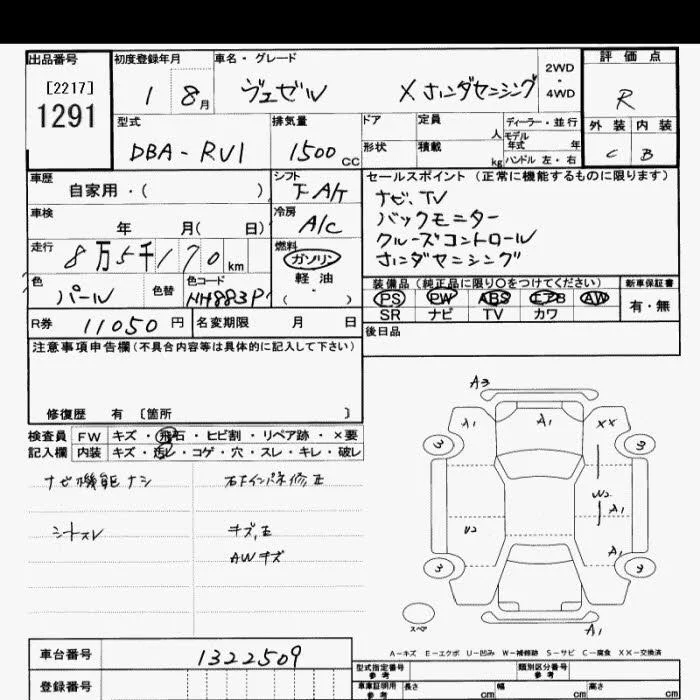 出品番号 初度登録年月 車名・グレード 2WD・4WD 評価点
[2217]
1291
1 8月 ヴェゼル Xホンダセンシング R
型式 排気量 ドア 定員 人 ディーラー・並行 外装 内装
モデル年式 年
DBA-RU1 1500cc 形状 積載 kg ハンドル 左・右 C B
車歴 自家用・( ) シフト 下A/T
セールスポイント(正常に機能するものに限ります)
ナビ、TV
バックモニター
クルーズコントロール
ホンダセンシング
車検 年 月( 日) 冷房 A/C
走行 8万5千170km 燃料 ガソリン 軽油 ( ・ )
色 パール 色替 色コード NH883P
装備品(純正品に限り○をつけてください) 新車保証書
PS PW ABS エアB AW 有・無
SR ナビ TV カワ
R券 11050円 名変期限 月 日
後日品
注意事項申告欄(不具合内容等は具体的に記入して下さい)
修復歴 有 〔箇所 〕
検査員 FW キズ・飛石・ヒビ割・リペア跡・×要
記入欄 内装 キズ・汚レ・コゲ・穴・スレ・キレ・破レ
ナビ機能ナシ 右下インパネ修正
シートスレ キズ、
AWキズ
A3
A1 A1 XX
3 3
W2
A1
U2
A1
3 3
スペア
A1
A-キズ E-エクボ U-凹み W-補修跡 S-サビ C-腐食 XX-交換済
車台番号 1322509
登録番号
型式指定番号 参考 類別区分番号 参考
車庫証明用 参考 長さ cm 幅 cm 高さ cm